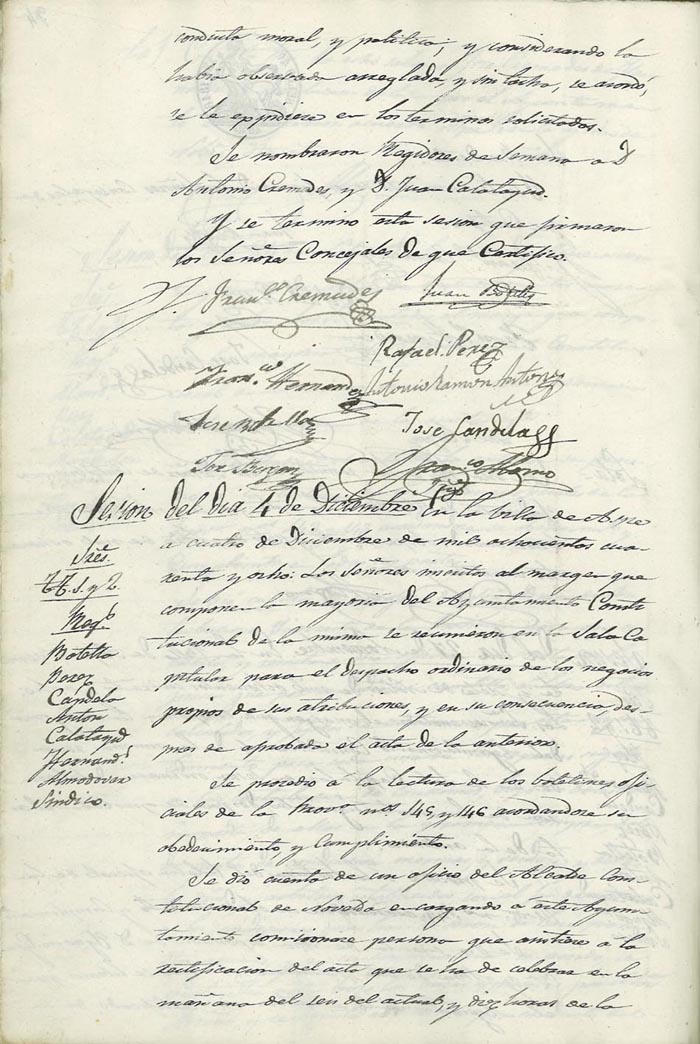 conducta moral, y politica; y considerando la
habia observado arreglada, y sin tacha, se acordó,
se le expidiere en los terminos solicitados.
Se nombraron Regidores de Semana a D
Antonio Cremades, y D. Juan Calatayud.
Y se termino esta sesion que firmaron
los Señores Concejales de que Certifico.
Fran.co Cremades
Juan Botella
Rafael Perez
Fran.co Hernand
Antonio Ramon Anton
Jose Botella
Jose Candela
Fran.co
Sesion del dia 4 de Diciembre en la villa de Aspe
a cuatro de Diciembre de mil ochocientos cua-
renta y ocho: Los Señores inscritos al margen que
componen la mayoria del Ayuntamiento Consti-
tucional de la misma se reunieron en la Sala Ca
pitular para el despacho ordinario de los negocios
propios de sus atribuciones, y en su consecuencia, des-
pues de aprobada el acta de la anterior.
Sres.
TT. 1. y 2.
Reg.s
Botella
Perez
Candela
Anton
Calatayud
Hernand.
Almodovar
Sindico.
Se procedio á la lectura de los boletines ofi-
ciales de la Prov.a nos 145, y 146 acordandose su
obedecimiento, y Cumplimiento.
Se dió cuenta de un oficio del Alcalde Cons-
titucional de Novelda encargando a este Ayun-
tamiento comisionare persona que asistiere á la
rectificacion del acta que se ha de celebrar en la
mañana del seis del actual, y diez horas de la